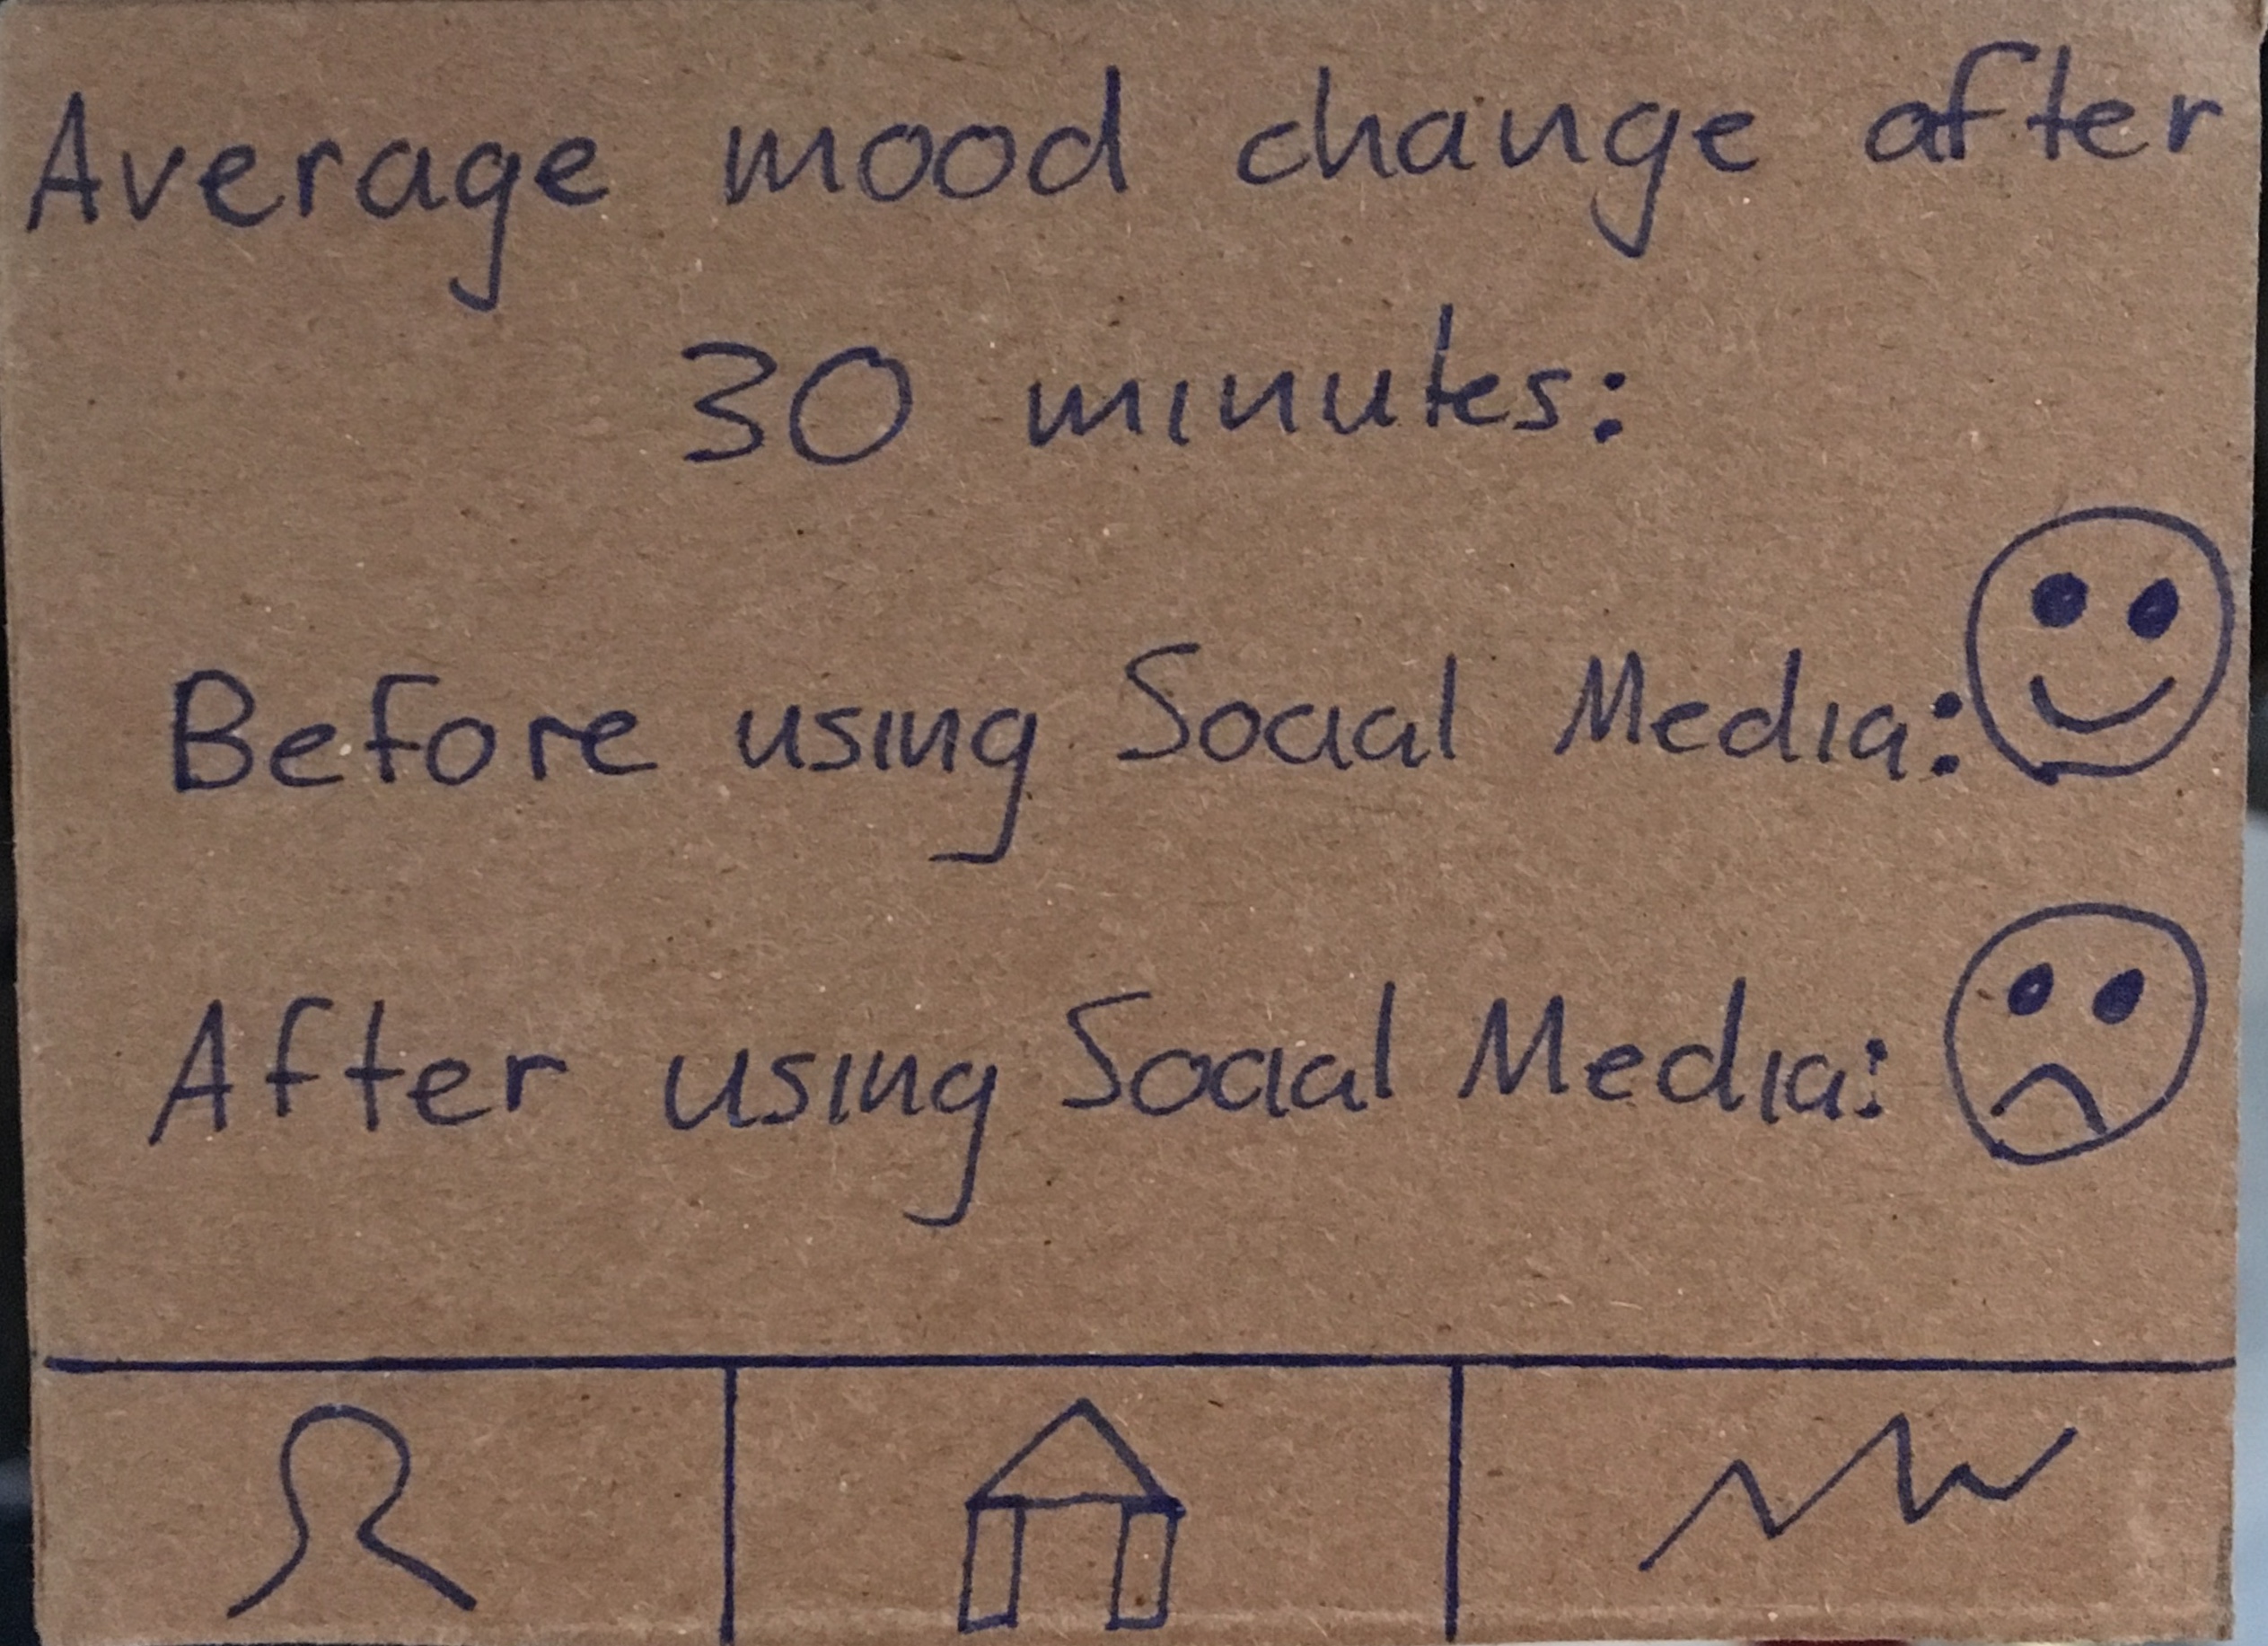 Average mood change after
30 minutes:
Before using Social Media:
After using Social Media: